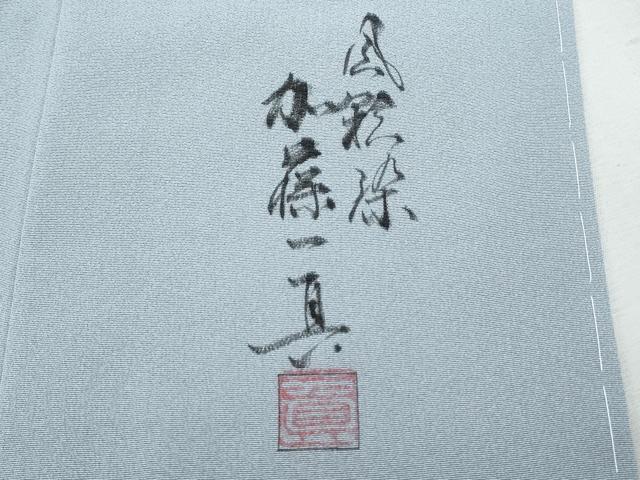 風彩染
加藤一真